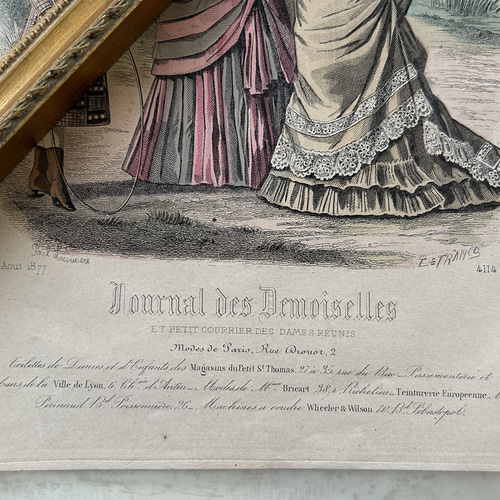 Août 1877
E. PRÉVAL
4114
Journal des Demoiselles
ET PETIT COURRIER DES DAMES RÉUNIS
Modes de Paris, Rue Drouot, 2
Toilettes de Dames et d'Enfants des Magasins du Petit St Thomas, 27 à 35, rue du Bac _ Passementerie et
de la Ville de Lyon, 6, Chée d'Antin _ Modes de Mme Bricart 38, r. Richelieu _ Teinturerie Européenne,
Perinaud Bd Poissonnière, 26 _ Machines à coudre Wheeler & Wilson 70, Bd Sébastopol.